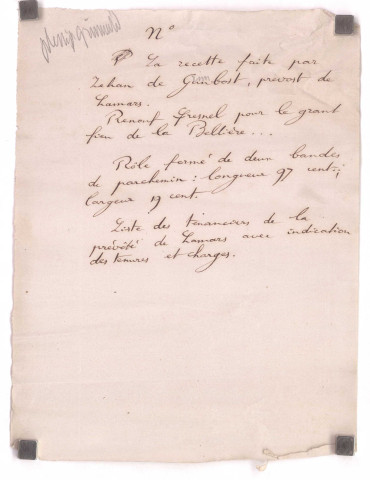 N°
La recette faite par
Jehan de Gambost, prévost de
Lamars.
Renouf Gresnel pour le grant
fieu de la Bellière...
Rôle formé de deux bandes
de parchemin : longueur 97 cent.;
largeur 19 cent.
Liste des tenanciers de la
prévôté de Lamars avec indication
des tenures et charges.